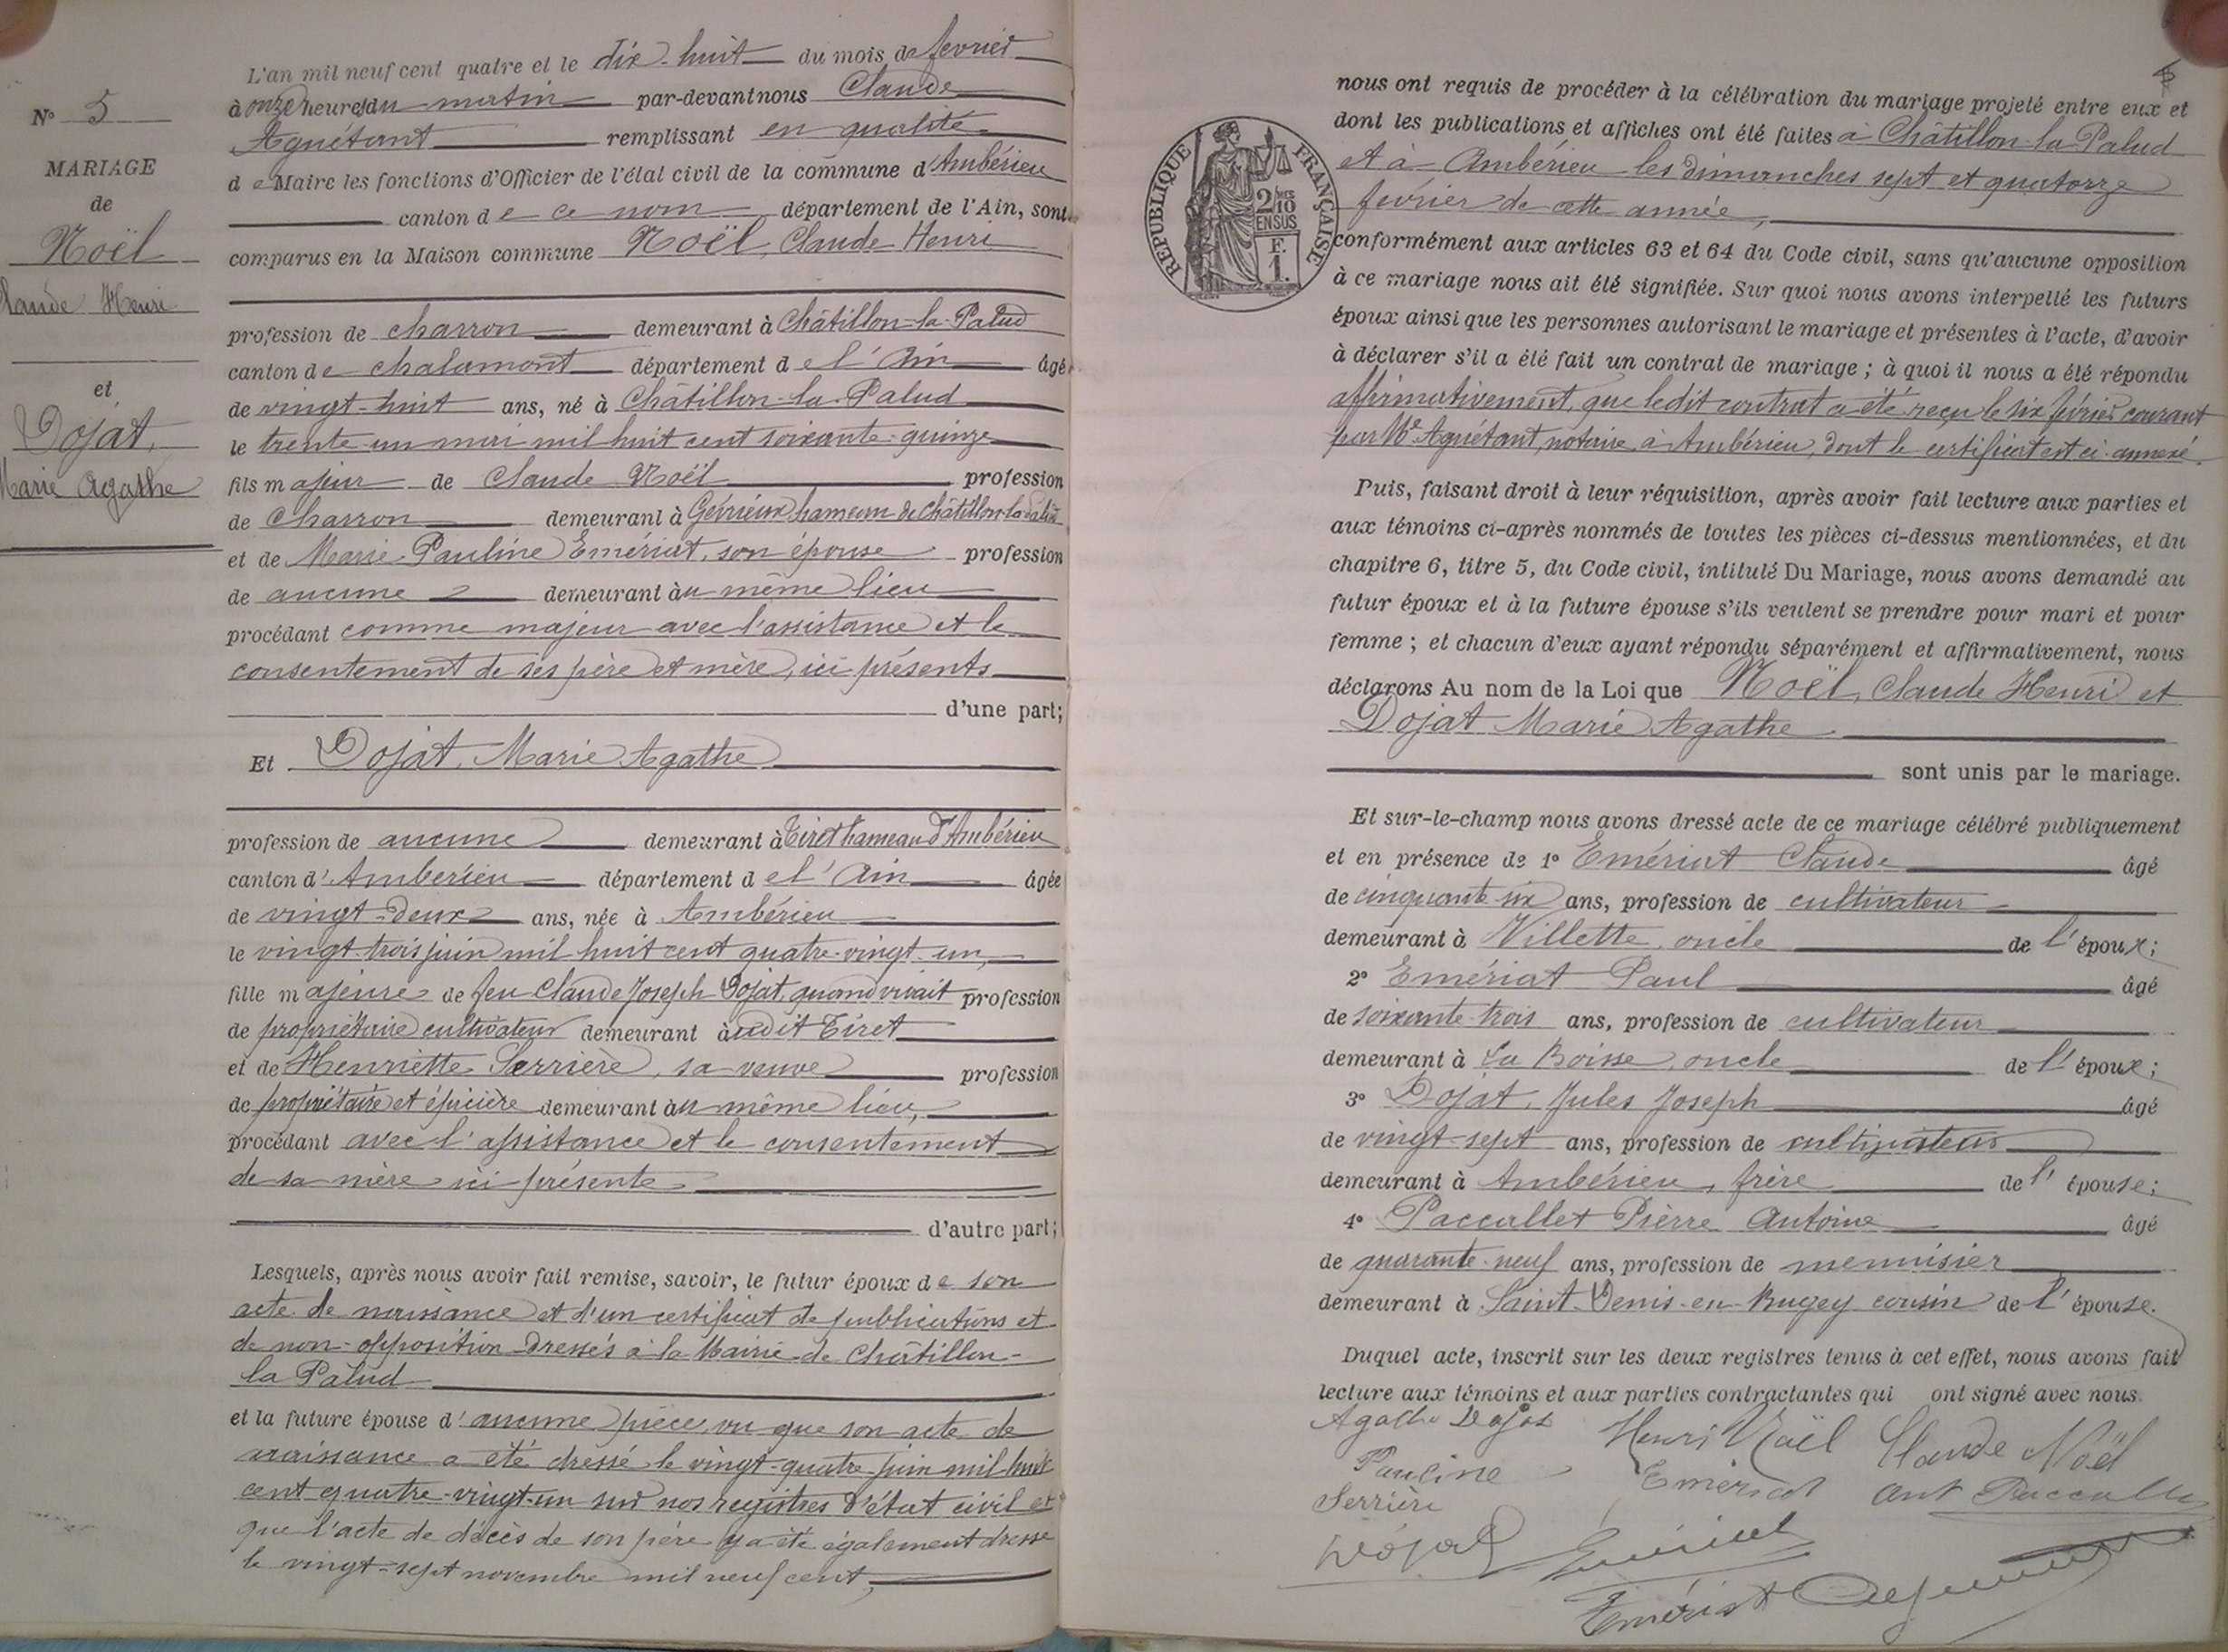 N° 5
MARIAGE
de
Noël
Claude Henri
et
Dojat,
Marie Agathe
L'an mil neuf cent quatre et le dix-huit du mois de fevrier
à onze heures du matin par-devant nous Claude
Aguétant remplissant en qualité
de Maire les fonctions d'Officier de l'état civil de la commune d'Ambérieu
canton de ce nom département de l'Ain, sont
comparus en la Maison commune Noël, Claude Henri
profession de charron demeurant à Châtillon-la-Palud
canton de chalamont département de l'Ain âgé
de vingt-huit ans, né à Châtillon-la-Palud
le trente-un mai mil huit cent soixante-quinze
fils majeur de Claude Noël profession
de charron demeurant à Gévrieux hameau de Châtillon-la-Palud
et de Marie-Pauline Emériat, son épouse profession
de aucune demeurant au même lieu
procédant comme majeur avec l'assistance et le
consentement de ses père et mère, ici présents
d'une part;
Et Dojat, Marie Agathe
profession de aucune demeurant à Tiret hameau d'Ambérieu
canton d'Ambérieu département de l'Ain âgée
de vingt-deux ans, née à Ambérieu
le vingt-trois juin mil huit cent quatre-vingt-un,
fille majeure de feu Claude Joseph Dojat, quand vivait profession
de propriétaire cultivateur demeurant audit Tiret
et de Henriette Serrière, sa veuve profession
de propriétaire et épicière demeurant au même lieu,
procédant avec l'assistance et le consentement
de sa mère ici présente
d'autre part;
Lesquels, après nous avoir fait remise, savoir, le futur époux de son
acte de naissance et d'un certificat de publications et
de non-opposition dressés à la Mairie de Châtillon-
la Palud
et la future épouse d'aucune pièce, vu que son acte de
naissance a été dressé le vingt-quatre juin mil huit
cent quatre-vingt-un sur nos registres d'état civil et
que l'acte de décès de son père y a été également dressé
le vingt-sept novembre mil neuf cent,
REPUBLIQUE FRANÇAISE
2/10 EN SUS
F. 1.
nous ont requis de procéder à la célébration du mariage projeté entre eux et
dont les publications et affiches ont été faites à Châtillon-la-Palud
et à Ambérieu les dimanches sept et quatorze
février de cette année,
conformément aux articles 63 et 64 du Code civil, sans qu'aucune opposition
à ce mariage nous ait été signifiée. Sur quoi nous avons interpellé les futurs
époux ainsi que les personnes autorisant le mariage et présentes à l'acte, d'avoir
à déclarer s'il a été fait un contrat de mariage; à quoi il nous a été répondu
affirmativement, que ledit contrat a été reçu le six février courant
par Me Aguétant, notaire à Ambérieu, dont le certificat est ci-annexé.
Puis, faisant droit à leur réquisition, après avoir fait lecture aux parties et
aux témoins ci-après nommés de toutes les pièces ci-dessus mentionnées, et du
chapitre 6, titre 5, du Code civil, intitulé Du Mariage, nous avons demandé au
futur époux et à la future épouse s'ils veulent se prendre pour mari et pour
femme; et chacun d'eux ayant répondu séparément et affirmativement, nous
déclarons Au nom de la Loi que Noël, Claude Henri et
Dojat Marie Agathe
sont unis par le mariage.
Et sur-le-champ nous avons dressé acte de ce mariage célébré publiquement
et en présence de 1° Emériat Claude âgé
de cinquante-six ans, profession de cultivateur
demeurant à Villette, oncle de l'époux;
2° Emériat Paul âgé
de soixante-trois ans, profession de cultivateur
demeurant à La Boisse, oncle de l'époux;
3° Dojat, Jules Joseph âgé
de vingt-sept ans, profession de cultivateur
demeurant à Ambérieu, frère de l'épouse;
4° Paccallet Pierre Antoine âgé
de quarante-neuf ans, profession de menuisier
demeurant à Saint-Denis-en-Bugey cousin de l'épouse.
Duquel acte, inscrit sur les deux registres tenus à cet effet, nous avons fait
lecture aux témoins et aux parties contractantes qui ont signé avec nous.
Agathe Dojat Henri Noël Claude Noël
Pauline Emériat Ant Paccallet
Serrière
Dojat Emériat
Emériat